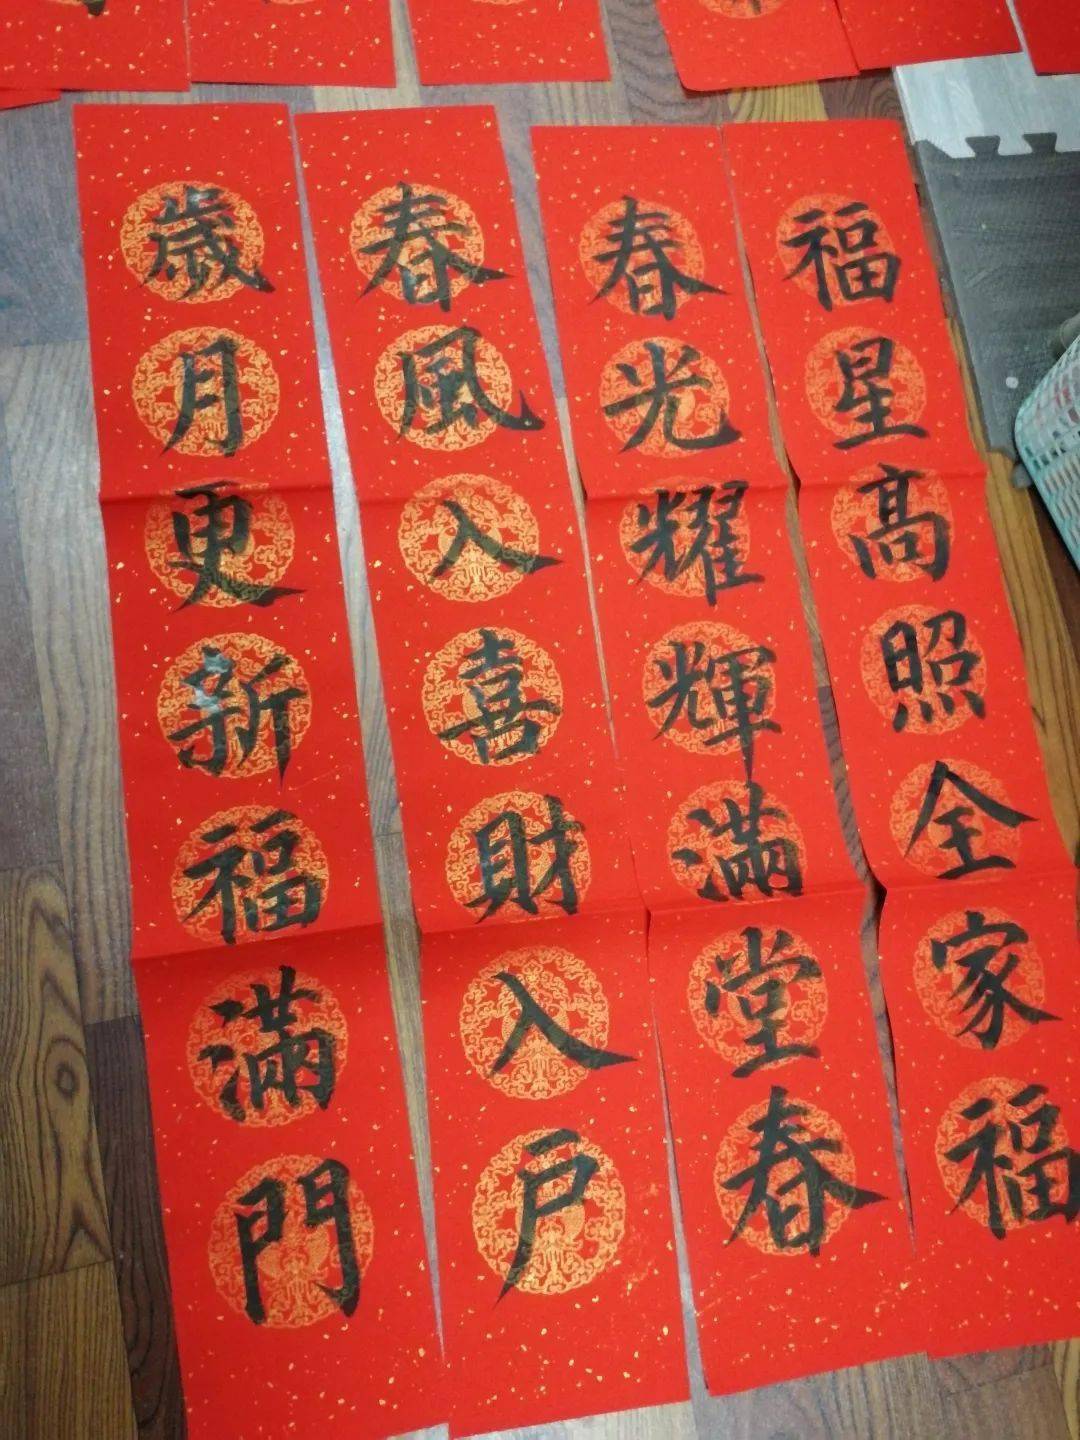 福星高照全家福
春光耀輝滿堂春
春風入喜財入戶
歲月更新福滿門